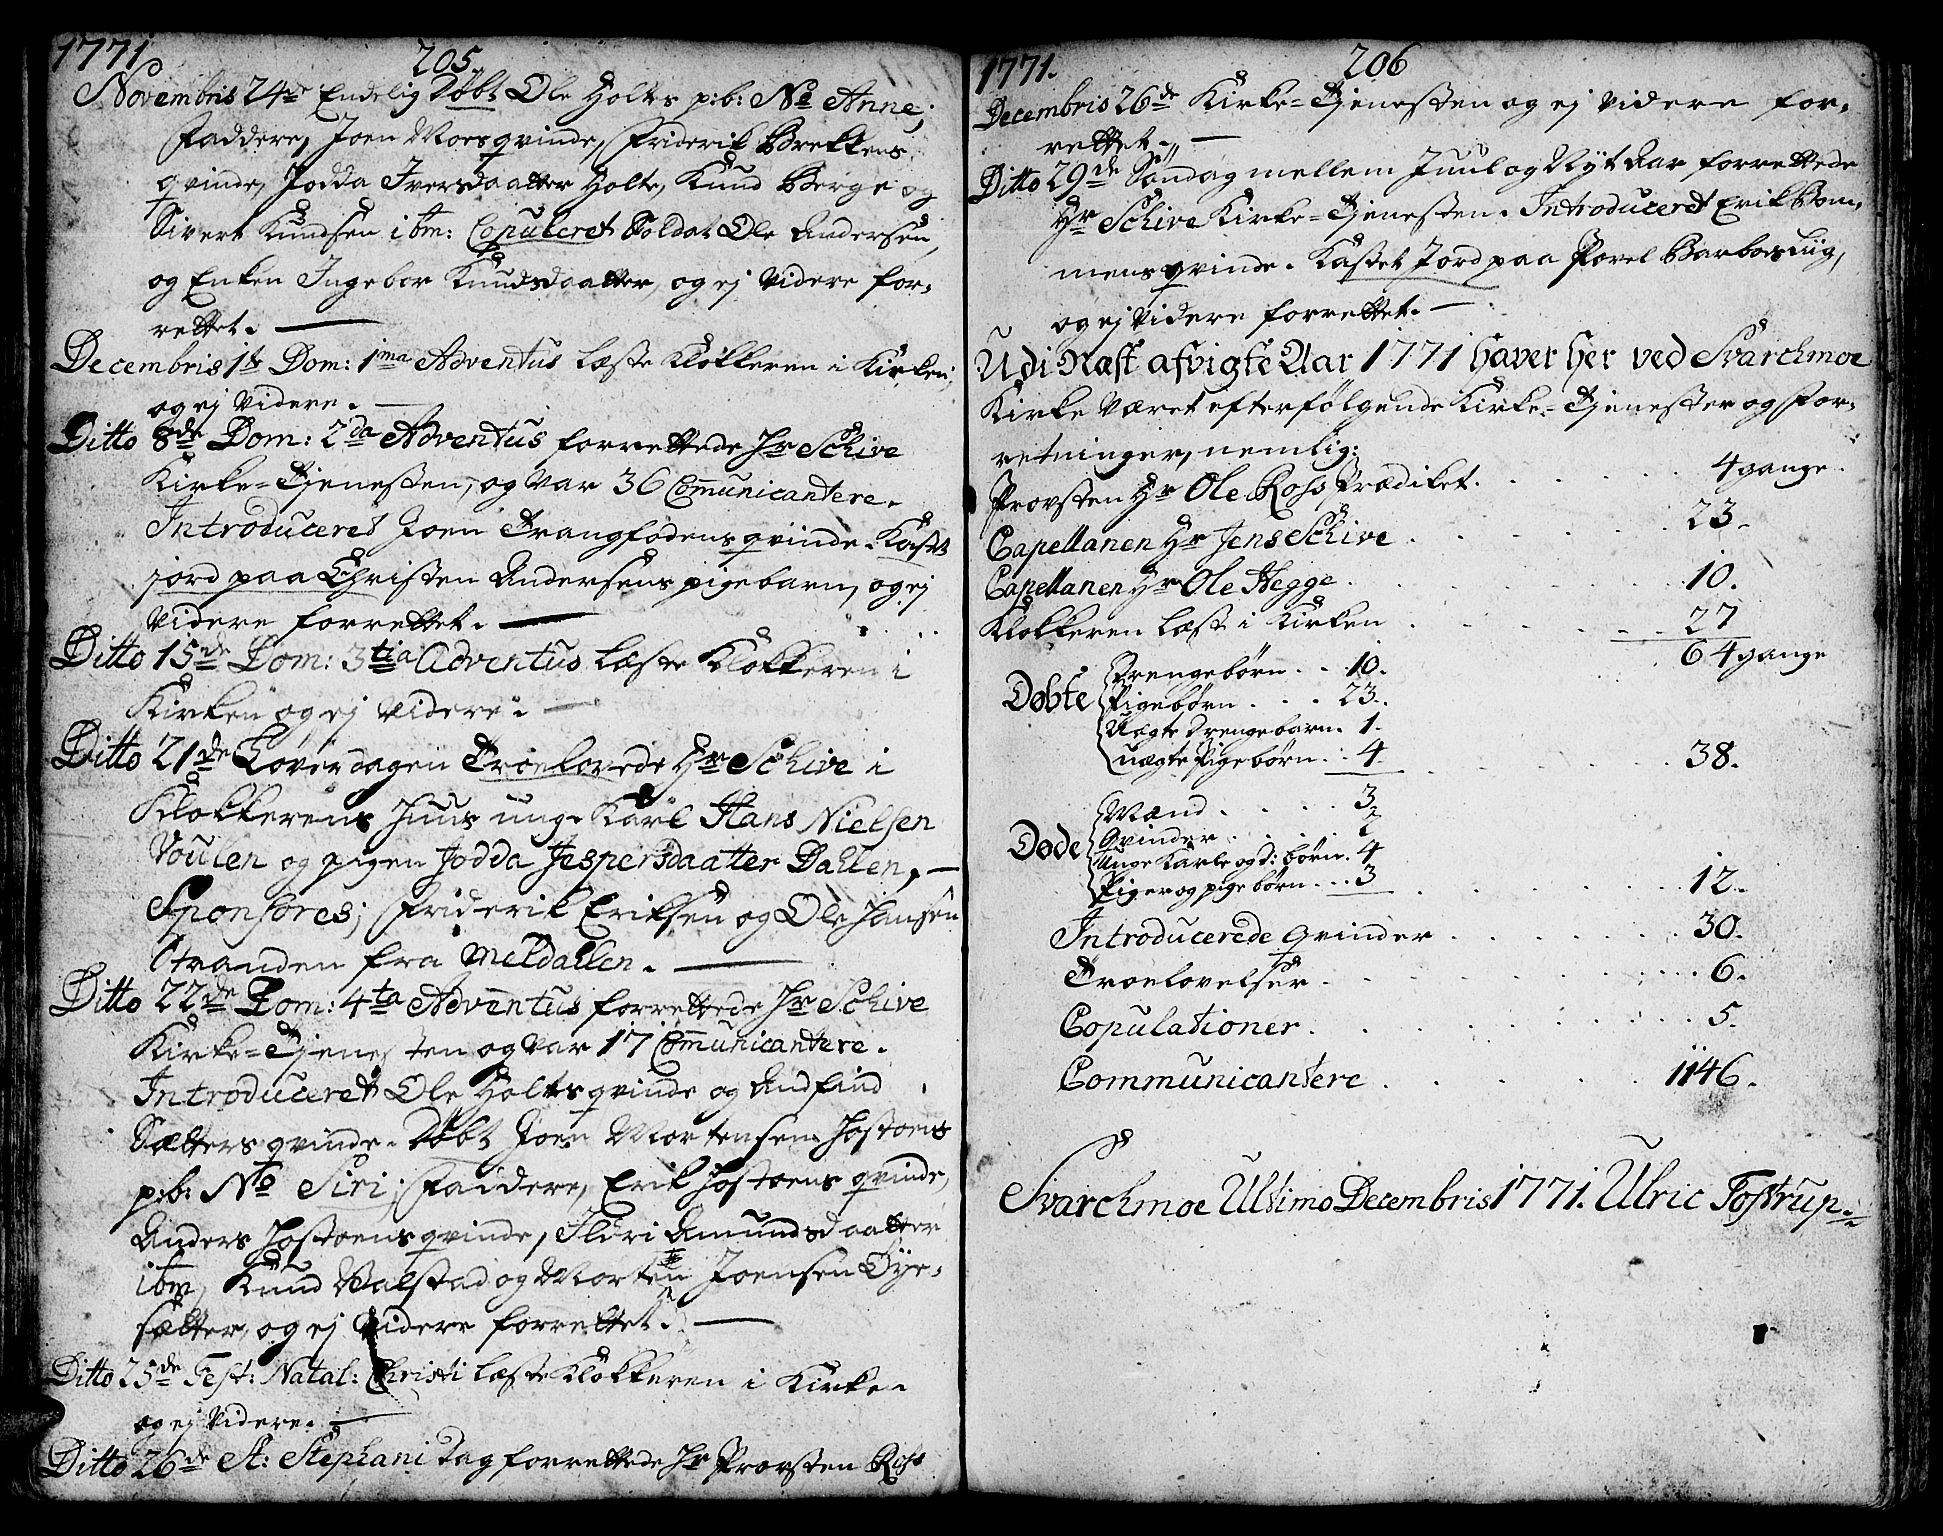 1771
205.
Novembris 24de Endelig Døbt Ole Holtes p:b: No Anne;
Faddere, Joen Moes qvinde, Friderik Brekkens
qvinde, Jodda Iversdaatter Holte, Knud Berge og
Sivert Knudsen ibm: Copuleret Soldat Ole Andersen,
og Enken Ingebor Knudsdaatter, og ej videre for-
rettet.
Decembris 1te Dom: 1ma Adventus læste Klokkeren i Kirken
og ej videre.
Ditto 8de Dom: 2da Adventus forrettede Hr Schive
Kirke-Tjenesten, og var 36 Communicantere.
Introduceret Joen Trangfodens qvinde. Kastet
jord paa Christen Andersens pigebarn, og ej
videre forrettet.
Ditto 15de Dom: 3tia Adventus læste Klokkeren i
Kirken og ej videre.
Ditto 21de Løverdagen Troelovede Hr Schive i
Klokkerens Huus unge Karl Hans Nielsen
Voulen og pigen Jodda Jespersdaatter Dahlen,
Sponsores; Friderik Eriksen og Ole Hansen
Stranden fra Meldahlen.
Ditto 22de Dom: 4ta Adventus forrettede Hr Schive
Kirke-Tjenesten og var 17 Communicantere.
Introduceret Ole Holtes qvinde og Andfind
Sætters qvinde. Døbt Joen Mortensen Hostoens
p:b: No Siri; Faddere, Erik Hostoens qvinde,
Anders Hostoens qvinde, Ildri Amundsdaatter
ibm, Knud Walstad og Morten Joensen Øye-
sætter, og ej videre forrettet.
Ditto 25de Fest: Natal: Christi læste Klokkeren i Kirke.
og ej videre.
Ditto 26de St: Stephani Dag forrettede Hr Provsten Rohs
1771.
206
Decembris 26de Kirke-Tjenesten og ej videre for-
rettet.
Ditto 29de Søndag mellem Juul og Nyt Aar forrettede
Hr Schive Kirke-Tjenesten. Introduceret Erik Bom-
mens qvinde. Kastet Jord paa Povel Barboes Liig,
og ej videre forrettet.
Udi Næst afvigte Aar 1771 haver her ved Svarchmoe
Kirke været efterfølgende Kirke-Tjenester og For-
retninger, nemlig:
Provsten Hr Ole Rohs Prædiket. 4 gange.
Capellanen Hr Jens Schive 23.
Capellanen Hr Ole Hegge 10.
Klokkeren læst i Kirken 27
64 gange
Døbte Drengebørn 10.
Pigebørn 23.
Uægte Drengebarn. 1.
uægte Pigebørn 4. 38.
Døde Mænd 3
Qvinder 2
Unge Karle og d: børn. 4
Piger og pige børn 3 12.
Introducerede qvinder 30.
Troelovelser 6.
Copulationer 5.
Communicantere 1146.
Svarchmoe Ultimo Decembris 1771. Ulric Tostrup.